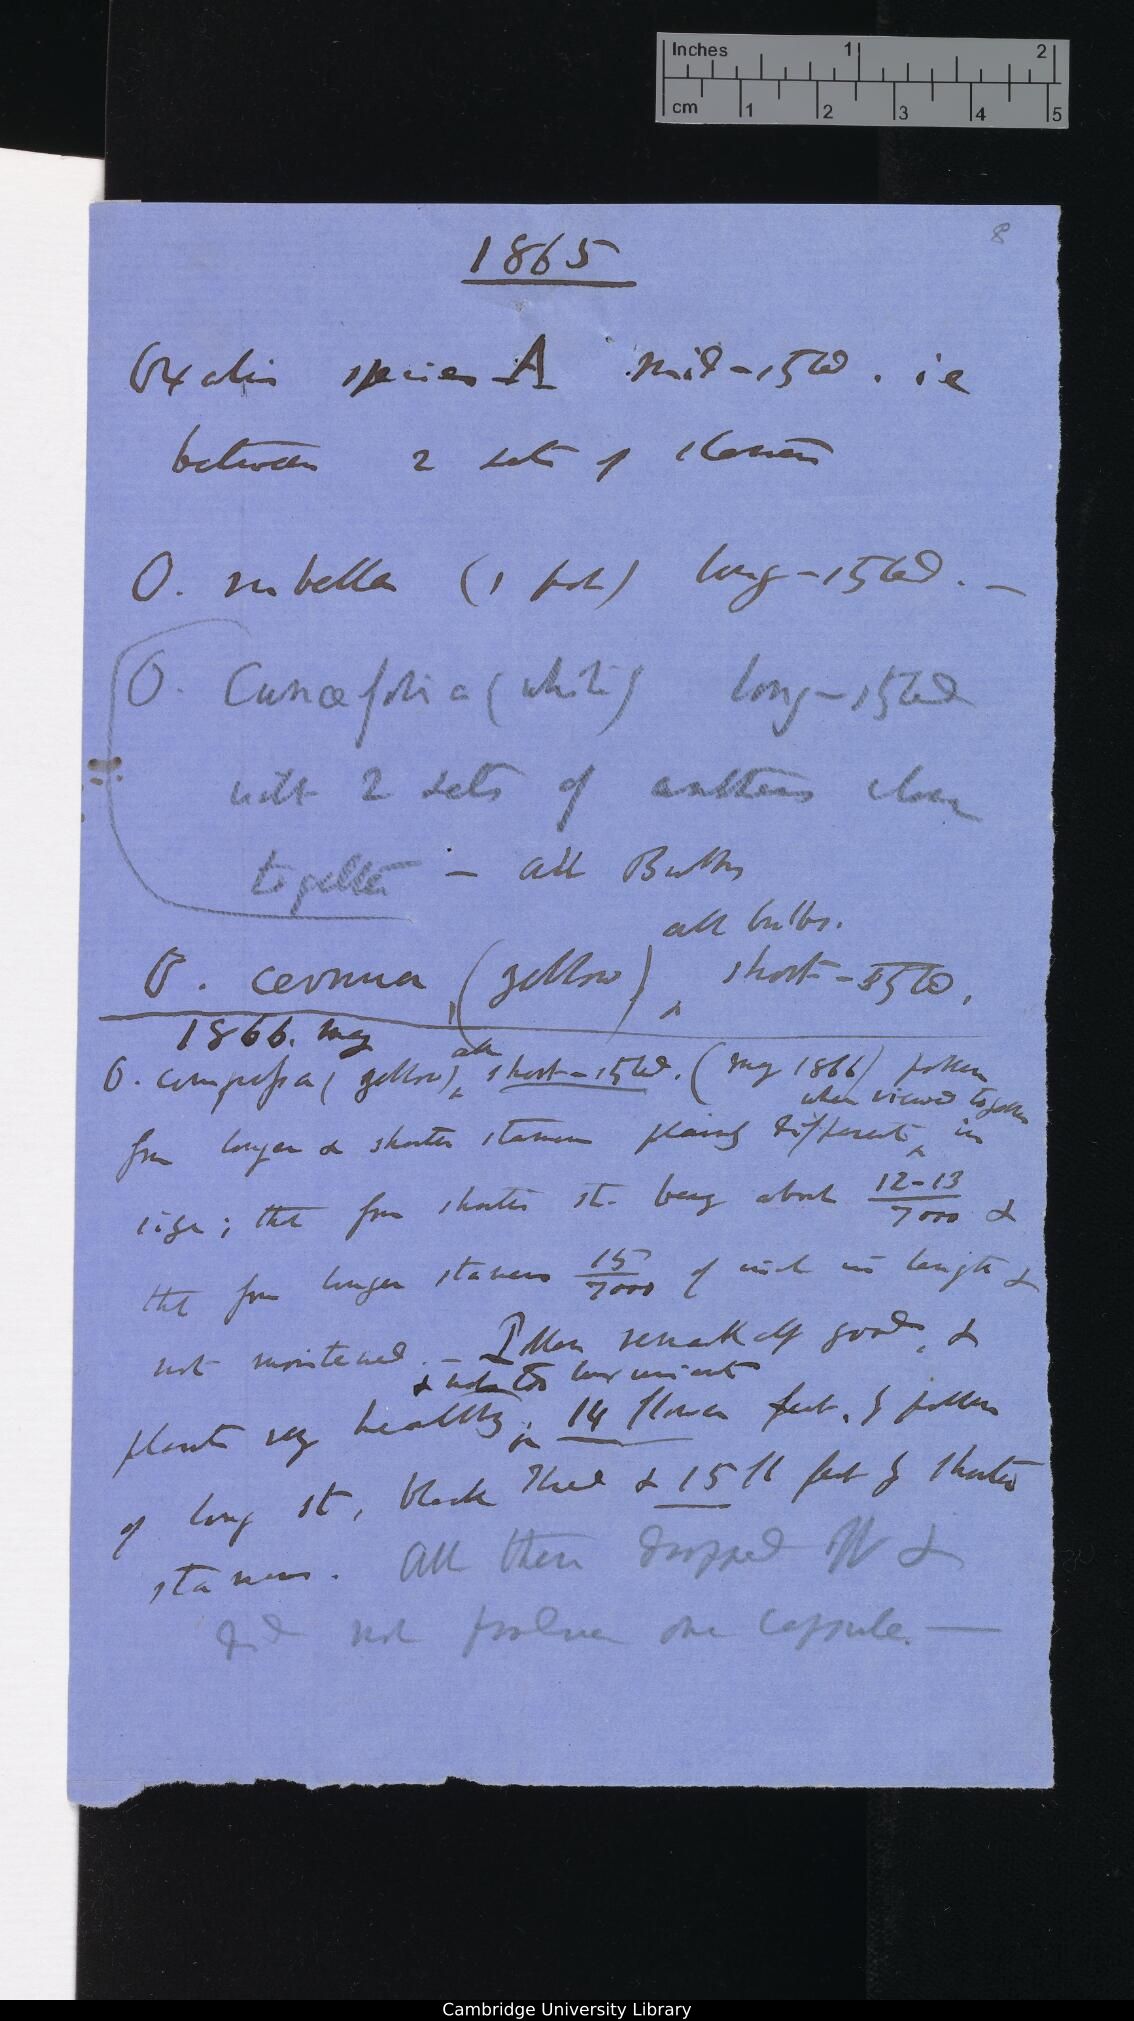 Inches 1 2
cm 1 2 3 4 5
8
1865
Oxalis species A mid-styled. ie
between 2 sets of stamens
O. rubella (1 pot) long-styled. —
O. Cuneefolia (white) long-styled
with 2 sets of anthers close
together — all Bulbs
all bulbs.
O. cernua (yellow) ^ short-styled.
1866. May
all
O. compressa (yellow) ^ short-styled. (May 1866) pollen
when viewed together
from longer & shorter stamens plainly different ^ in
size; that from shorter st. being about 12-13/7000 &
that from longer stamens 15/7000 of inch in length &
not moistened. — Pollen remarkably good, &
& not too luxuriant
plants very healthy; 14 flowers fert. by pollen
of long st, black thread & 15 fl fert by shorter
stamens. All these dropped off &
did not produce one capsule. —
Cambridge University Library